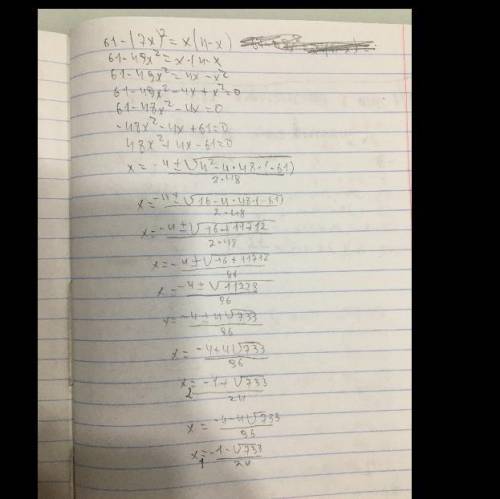 61-(7x)²=x(4-x)
61-49x²=x·(4-x
61-49x²=4x-x²
61-49x²-4x+x²=0
61-48x²-4x=0
-48x²-4x+61=0
48x²+4x-61=0
x=-4±√4²-4·48·(-61)
2·48
x=-4±√16-4·48·(-61)
2·48
x=-4±√16+11712
2·48
x=-4±√16+11712
96
x=-4±√11728
96
x=-4±4√733
96
x=-4+4√733
96
x₂=-1+√733
24
x=-4-4√733
96
x₁=-1-√733
24